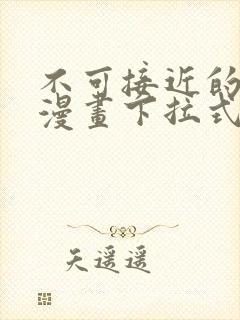 不可接近的
漫畫下拉式
天遥遥